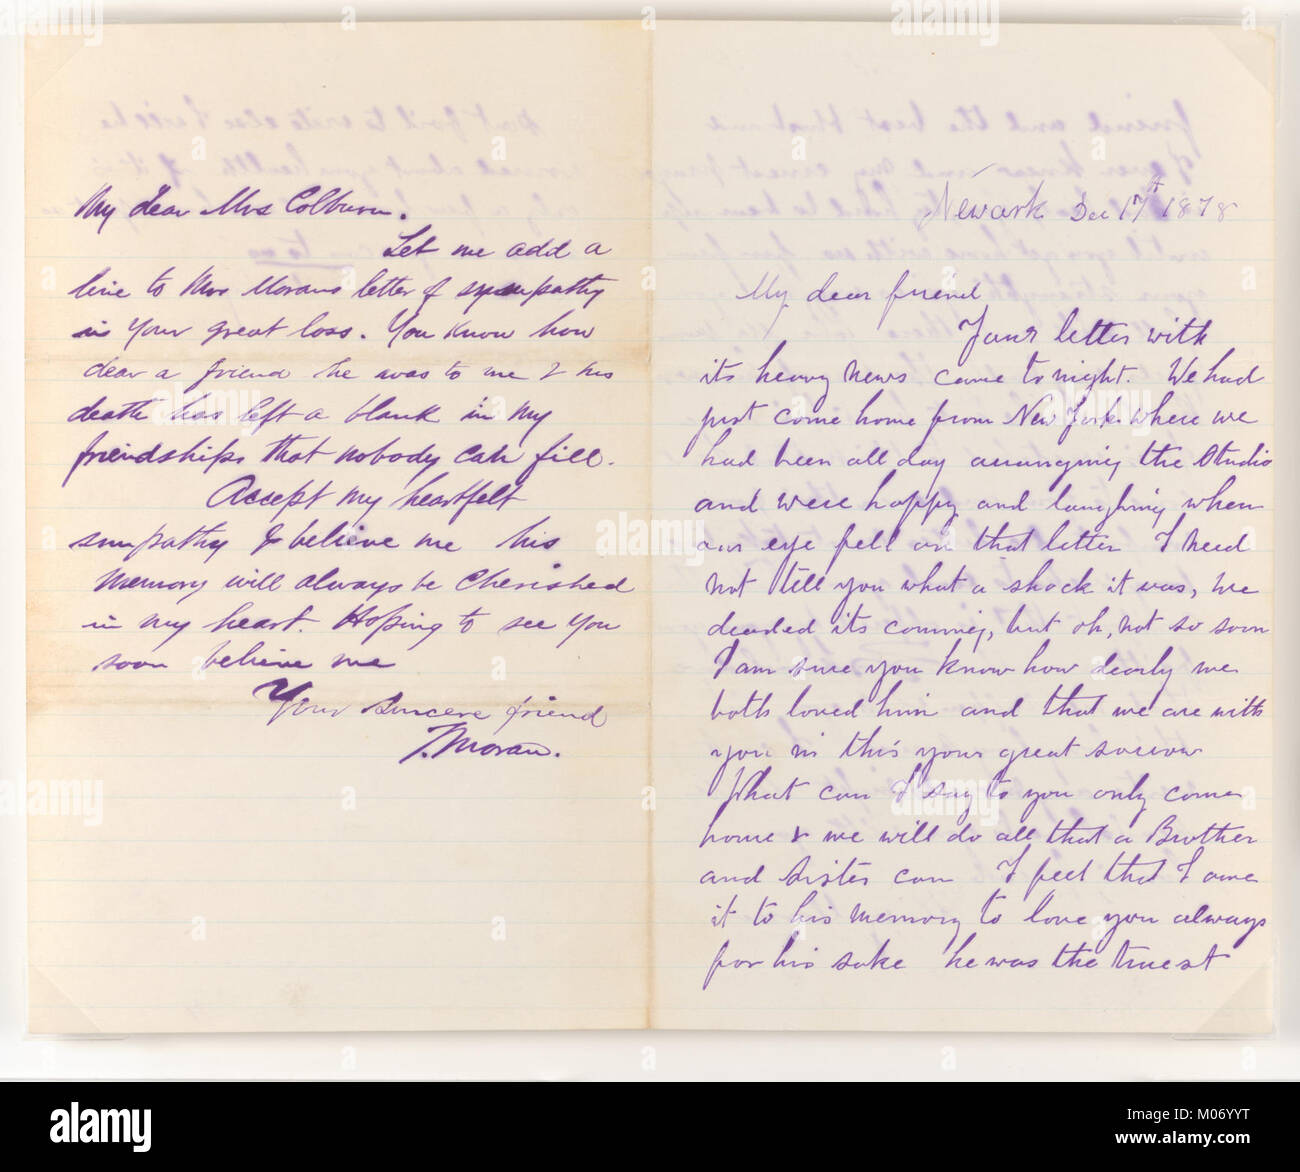 My dear Mrs Colburn.
Let me add a
line to Mrs Morans letter of sympathy
in your great loss. You know how
dear a friend he was to me & his
death has left a blank in my
friendships that nobody can fill.
Accept my heartfelt
sympathy & believe me his
memory will always be cherished
in my heart. Hoping to see you
soon believe me
Your sincere friend
T. Moran.
Newark Dec 17th 1878
My dear friend
Your letter with
its heavy news came to night. We had
just come home from New York where we
had been all day arranging the Studio
and were happy and laughing when
our eye fell on that letter I need
not tell you what a shock it was, we
dreaded its coming, but oh, not so soon
I am sure you know how dearly we
both loved him and that we are with
you in this your great sorrow
What can I say to you only come
home & we will do all that a Brother
and Sister can I feel that I owe
it to his memory to love you always
for his sake he was the truest
alamy
M06YYT
www.alamy.com